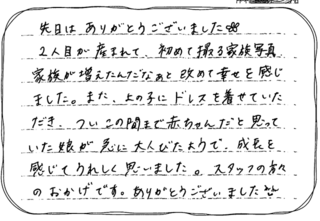 先日はありがとうございました
2人目が産まれて、初めて撮る家族写真
家族が増えたんだなぁと改めて幸せを感じ
ました。また、上の子にドレスを着せていた
だき、ついこの間まで赤ちゃんだと思って
いた娘が急に大人びたようで、成長を
感じてうれしく思いました。スタッフの方々
のおかげです。ありがとうございました